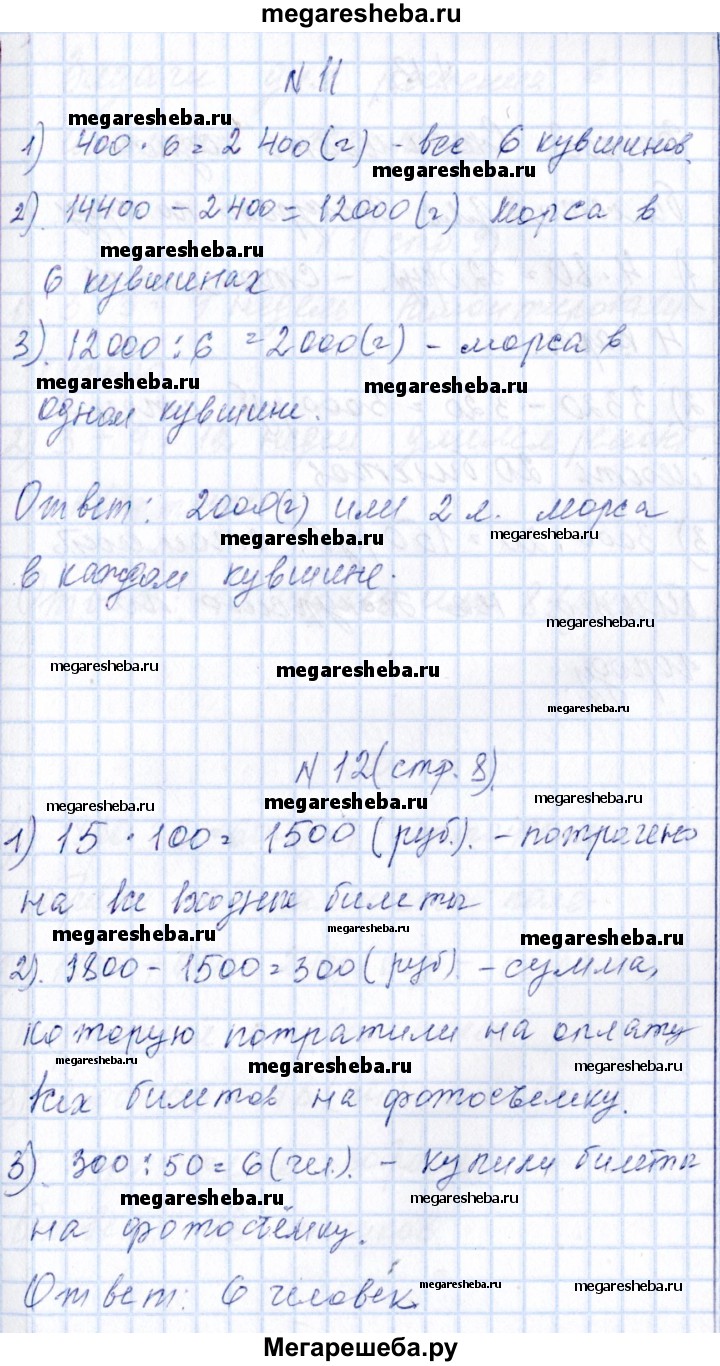 megaresheba.ru
N 11
megaresheba.ru
1) 400 · 6 = 2 400 (г) - вес 6 кувшинов
megaresheba.ru
2). 14400 - 2400 = 12000 (г) морса в
megaresheba.ru
6 кувшинах
3). 12000 : 6 = 2000 (г) - морса в
megaresheba.ru megaresheba.ru
одном кувшине.
Ответ: 2000(г) или 2 л. морса
megaresheba.ru megaresheba.ru
в каждом кувшине.
megaresheba.ru
megaresheba.ru megaresheba.ru
megaresheba.ru
N 12 (стр. 8)
megaresheba.ru megaresheba.ru megaresheba.ru
1) 15 · 100 = 1500 (руб.). - потрачено
на все входные билеты
megaresheba.ru megaresheba.ru megaresheba.ru
2). 1800 - 1500 = 300 (руб) - сумма,
которую потратили на оплату
megaresheba.ru megaresheba.ru megaresheba.ru
всех билетов на фотосъемку.
3). 300 : 50 = 6 (чел.). - купили билеты
megaresheba.ru megaresheba.ru
на фотосъёмку.
Ответ: 6 человек.
megaresheba.ru megaresheba.ru
Мегарешеба.ру